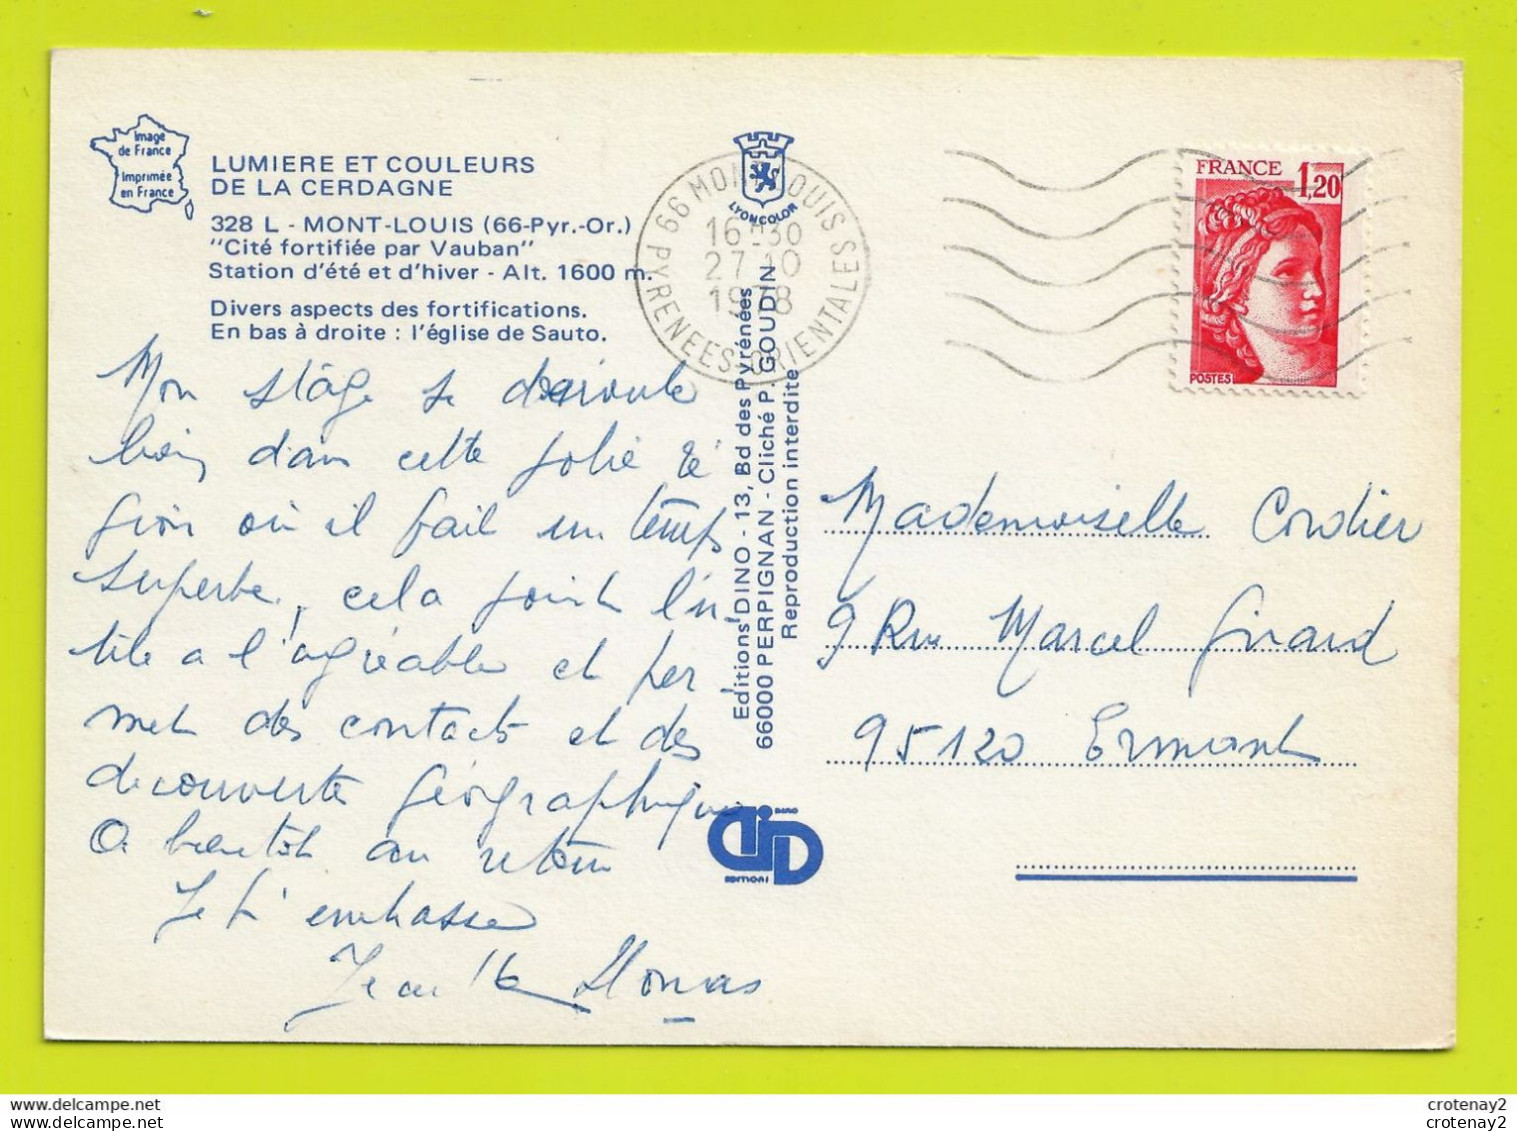 Image
de France
Imprimée
en France
LUMIERE ET COULEURS
DE LA CERDAGNE
328 L - MONT-LOUIS (66-Pyr.-Or.)
"Cité fortifiée par Vauban"
Station d'été et d'hiver - Alt. 1600 m.
Divers aspects des fortifications.
En bas à droite : l'église de Sauto.
Mon stage se deroule
bien dans cette jolie ré
gion où il fait un temps
superbe, cela joint l'u
tile a l'agréable et per
met des contacts et des
decouvertes géographiques
A bientôt au retour
Je t'embrasse
Thomas
LYONCOLOR
66 MONT-LOUIS
16 H 30
27-10
1978
PYRENEES-ORIENTALES
Editions DINO - 13, Bd des Pyrénées
66000 PERPIGNAN - Cliché P. GOUDIN
Reproduction interdite
DINO
EDITIONS
FRANCE 1,20
POSTES
Mademoiselle Cordier
9 Rue Marcel Girard
95120 Ermont
crotenay2
crotenay2